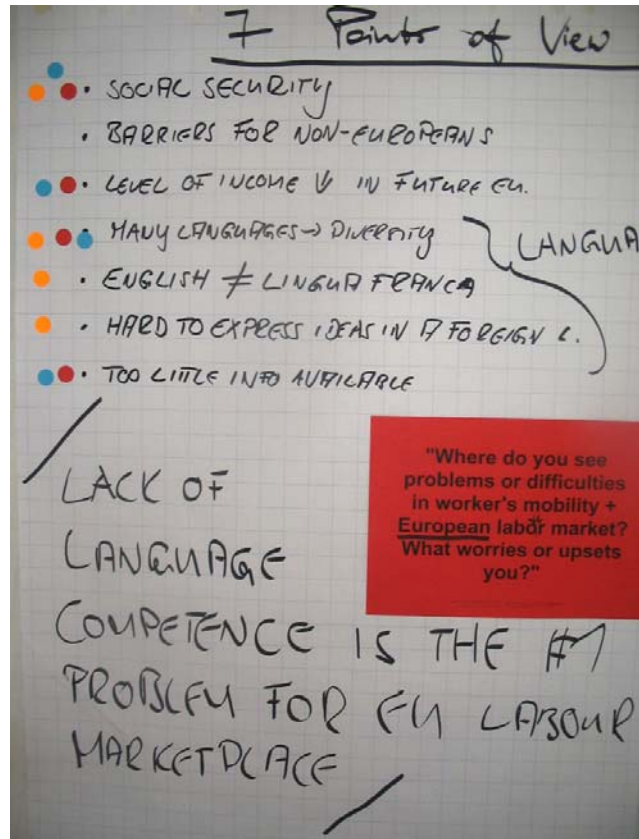 7 Points of View
• SOCIAL SECURITY
• BARRIERS FOR NON-EUROPEANS
• LEVEL OF INCOME ↓ IN FUTURE EU.
• MANY LANGUAGES → DIVERSITY
LANGUA
• ENGLISH ≠ LINGUA FRANCA
• HARD TO EXPRESS IDEAS IN A FOREIGN L.
• TOO LITTLE INFO AVAILABLE
"Where do you see
problems or difficulties
in worker's mobility +
European labor market?
What worries or upsets
you?"
LACK OF
LANGUAGE
COMPETENCE IS THE #1
PROBLEM FOR EU LABOUR
MARKETPLACE